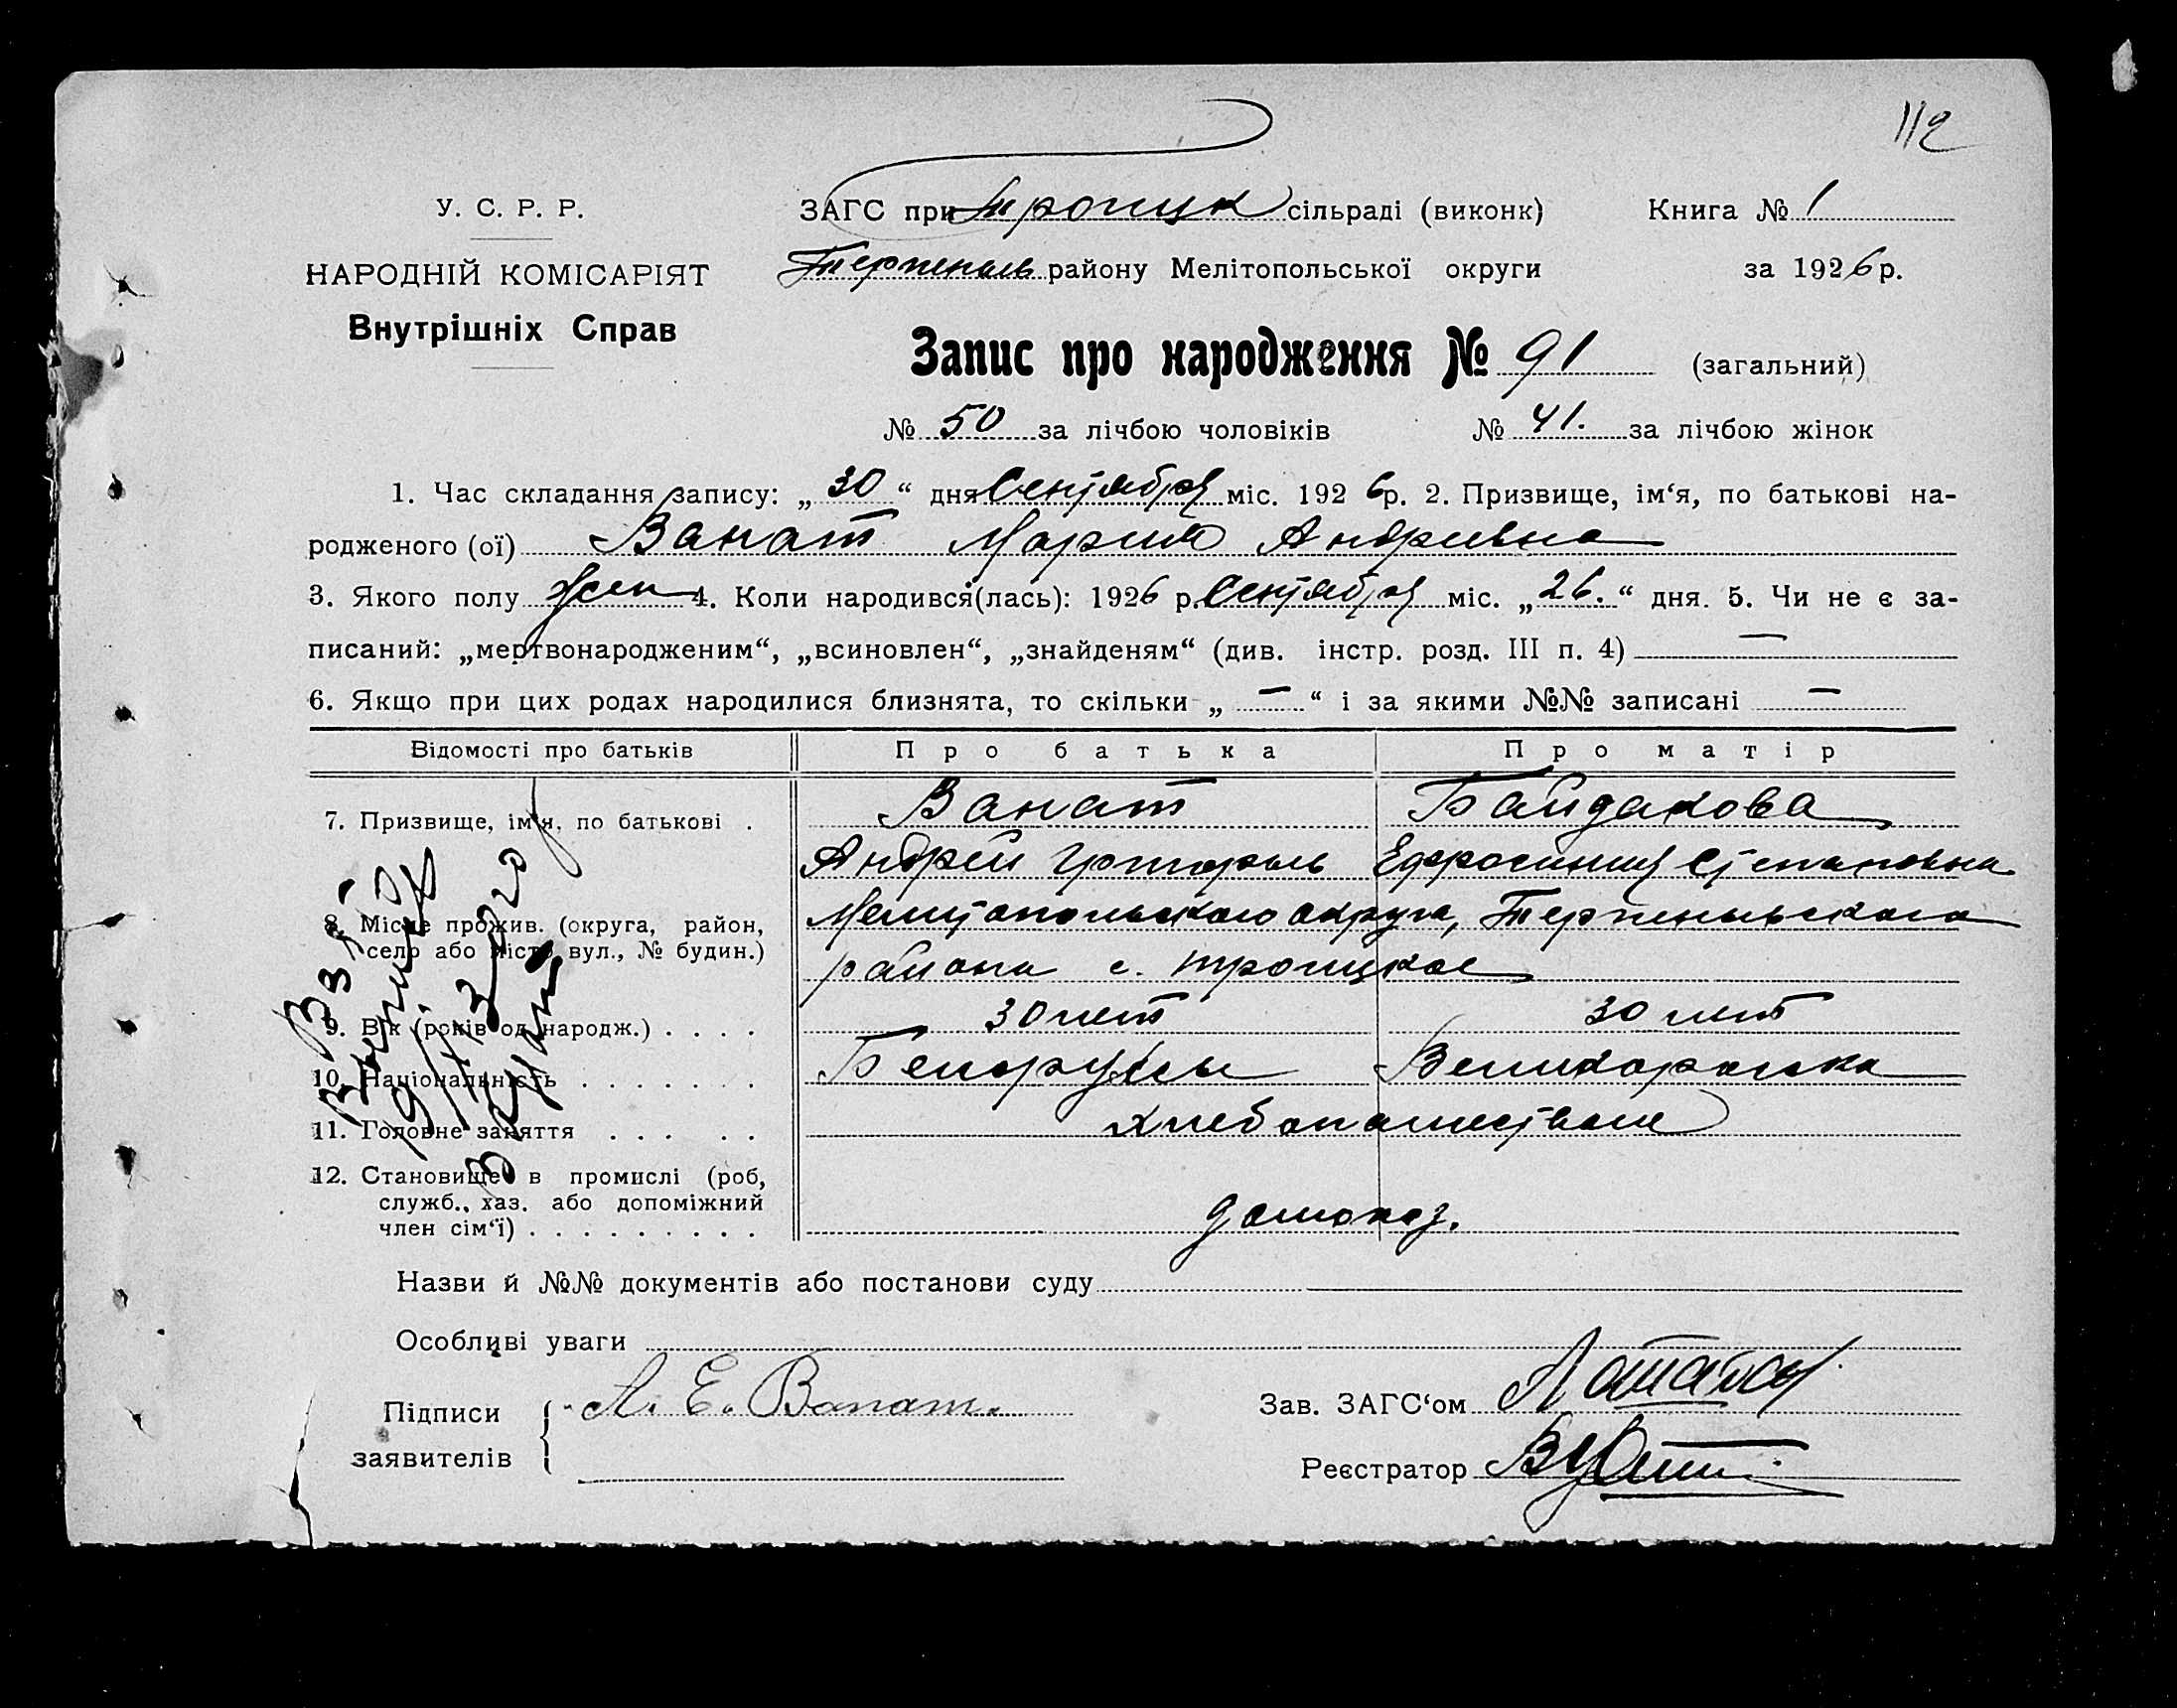 112
У. С. Р. Р.
НАРОДНІЙ КОМІСАРІЯТ
Внутрішніх Справ
ЗАГС при Троицк сільраді (виконк)
Книга № 1
Терпеньев району Мелітопольської округи
за 1926 р.
Запис про народження № 91 (загальний)
№ 50 за лічбою чоловіків № 41. за лічбою жінок
1. Час складання запису: „ 30 “ дня Сентября міс. 192 6 р. 2. Призвище, ім‘я, по батькові на-
родженого (ої) Ванат Мария Андреевна
3. Якого полу жен 4. Коли народився(лась): 1926 р. Сентября міс. „ 26. “ дня. 5. Чи не є за-
писаний: „мертвонародженим“, „всиновлен“, „знайденям“ (див. інстр. розд. III п. 4) —
6. Якщо при цих родах народилися близнята, то скільки „ — “ і за якими №№ записані —
Відомості про батьків
Про батька
Про матір
7. Призвище, ім‘я, по батькові .
Ванат
Байдакова
Андрей
Ефросиния Степановна
8. Місце прожив. (округа, район,
село або місто вул., № будин.)
Мелитопольского округа, Терпеньевского
района с. Троицкое
9. Вік (років од народж.) . . . .
30 лет
30 лет
10. Національність . . . . . . .
Белоруссы
Великороска
11. Головне заняття . . . . .
хлебопашество
12. Становище в промислі (роб,
служб., хаз. або допоміжний
член сім‘ї) . . . . . . . . .
домохоз.
Назви й №№ документів або постанови суду
Особливі уваги
Підписи
заявителів
А. Е. Ванат.
Зав. ЗАГС‘ом
Реєстратор